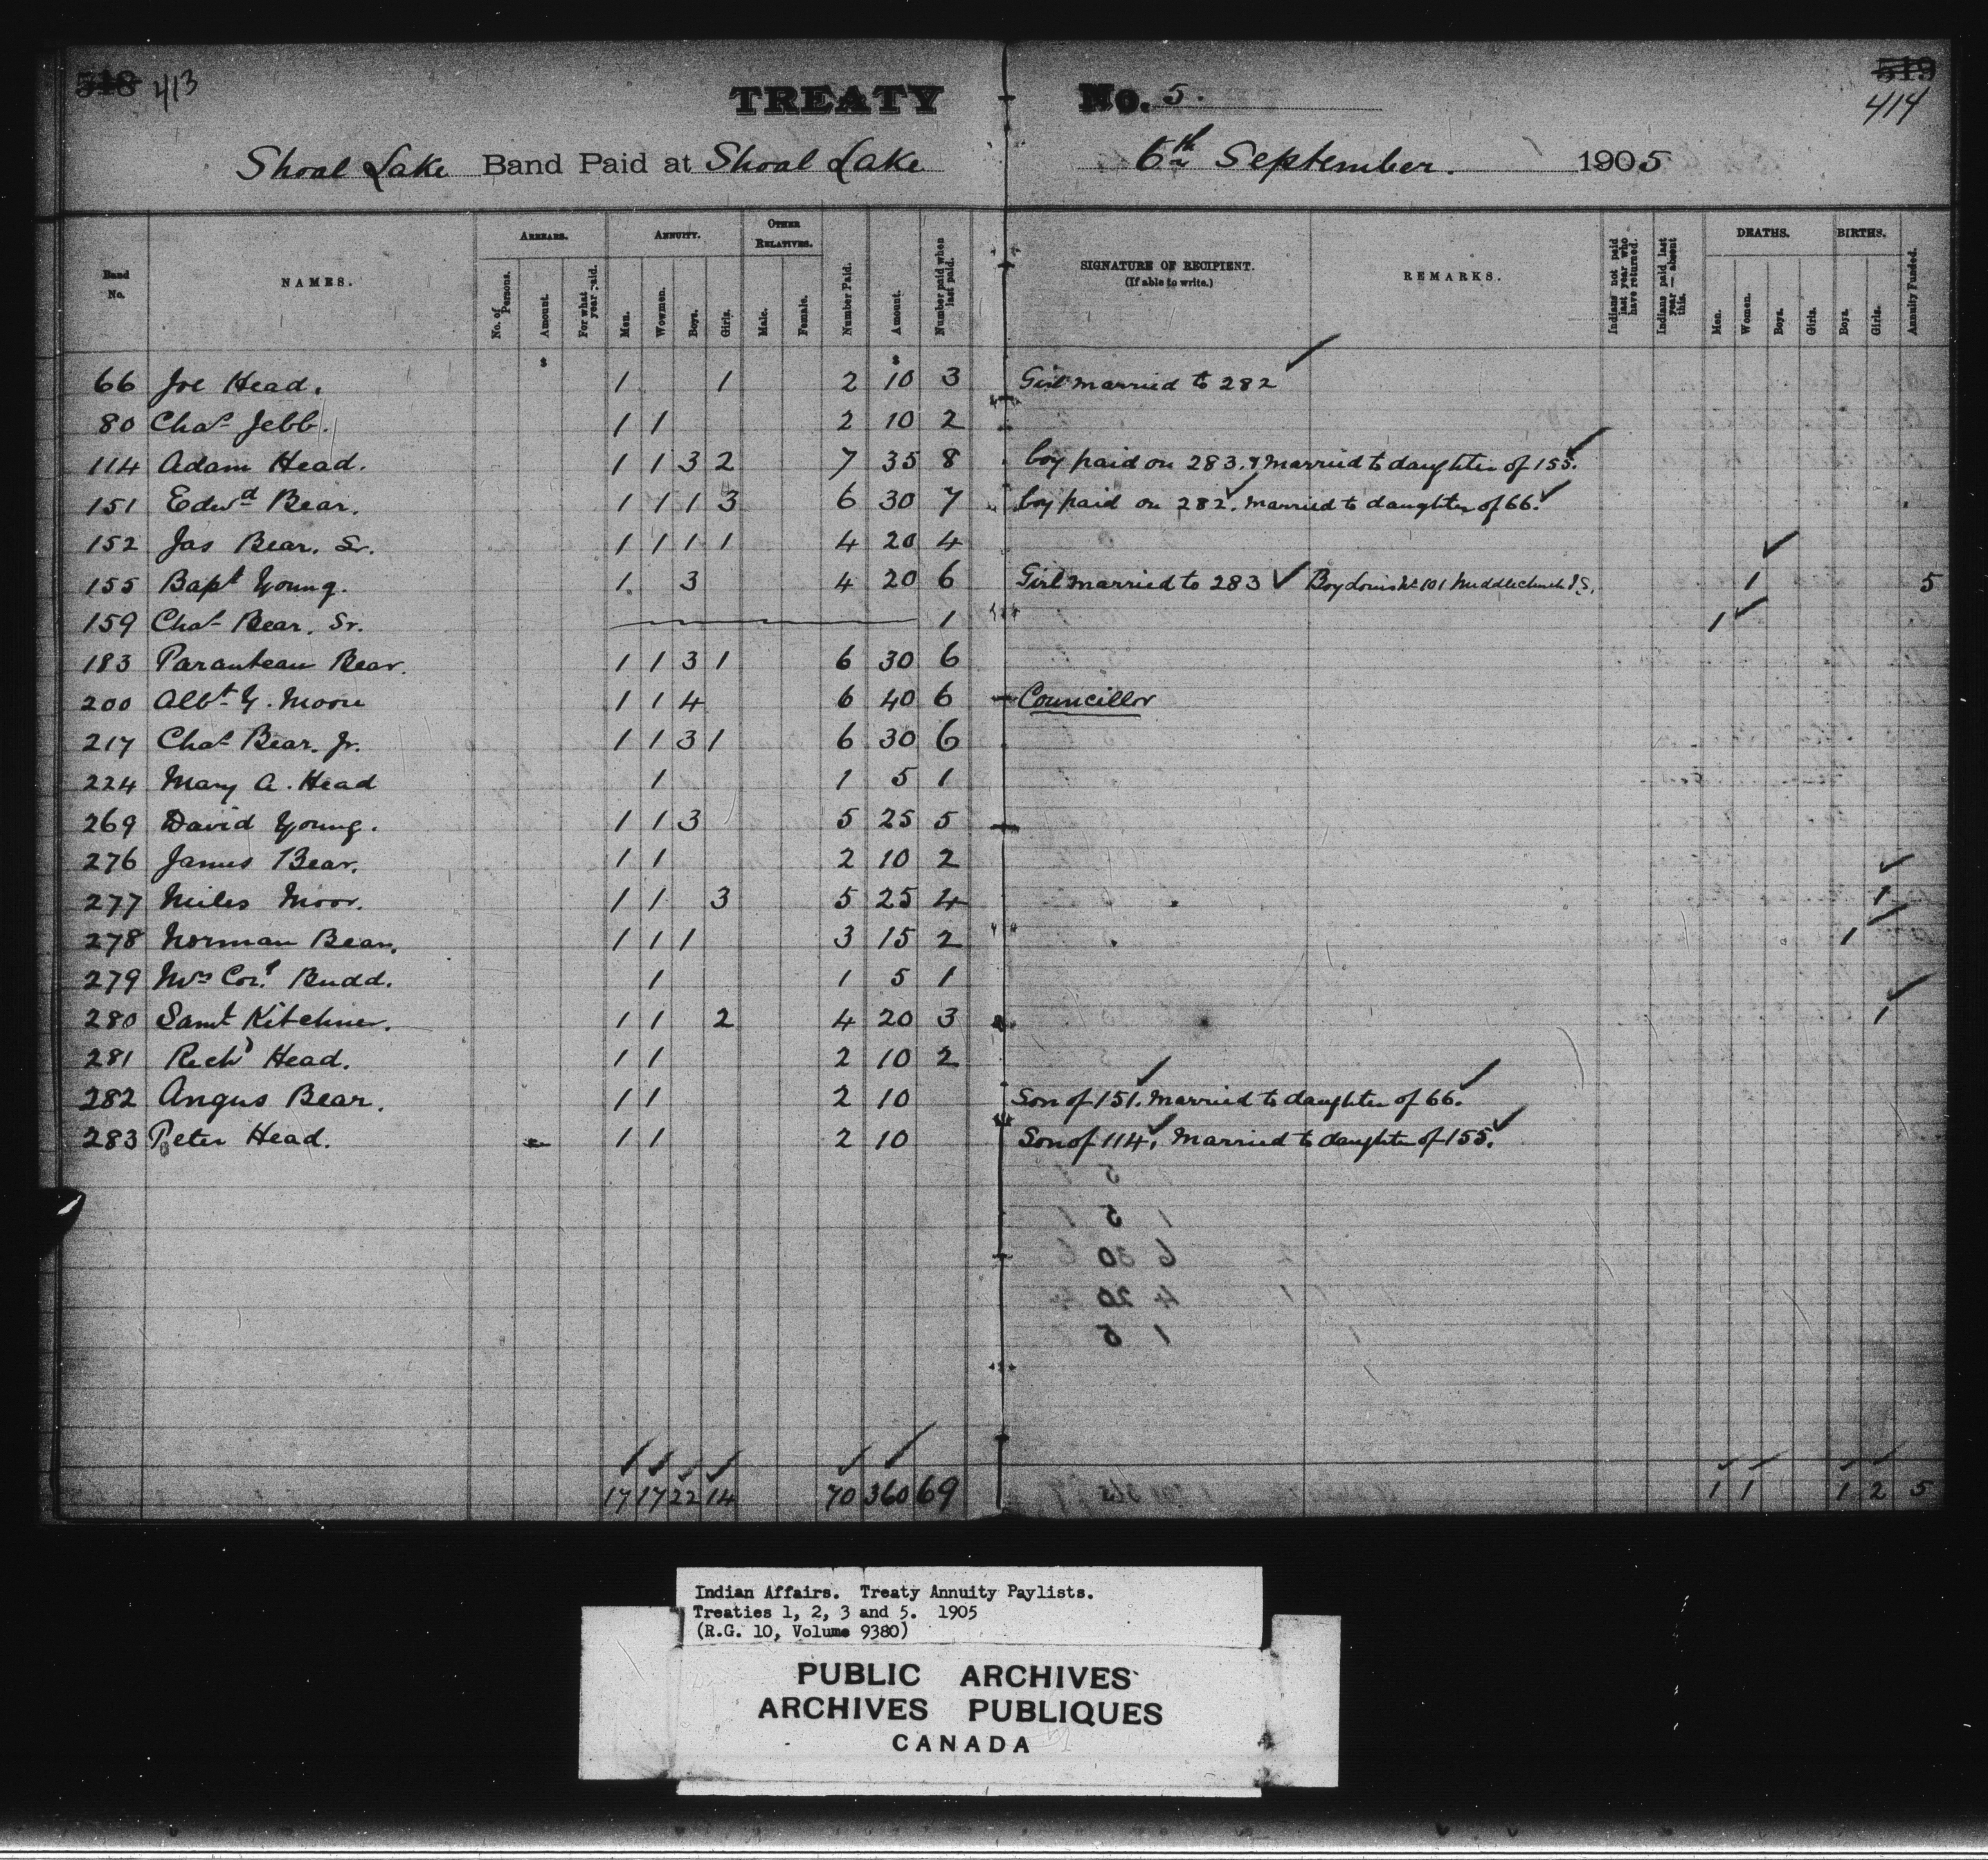 518 413 TREATY No. 5. 519
414
Shoal Lake Band Paid at Shoal Lake 6th September. 1905
Band No. NAMES. ARREARS. No. of Persons. Amount. For what year paid. ANNUITY. Men. Wowmen. Boys. Girls. OTHER RELATIVES. Male. Female. Number Paid. Amount. Number paid when last paid. SIGNATURE OF RECIPIENT. (If able to write.) REMARKS. Indians not paid last year who have returned. Indians paid last year — absent this. DEATHS. Men. Women. Boys. Girls. BIRTHS. Boys. Girls. Annuity Funded.
$ $
66 Joe Head. 1 1 2 10 3 Girl married to 282 ✓
80 Chas. Jebb. 1 1 2 10 2
114 Adam Head. 1 1 3 2 7 35 8 boy paid on 283. & married to daughter of 155. ✓
151 Edwd Bear. 1 1 1 3 6 30 7 boy paid on 282 ✓. married to daughter of 66. ✓
152 Jas Bear. Sr. 1 1 1 1 4 20 4
155 Bapt Young. 1. 3 4 20 6 Girl married to 283 ✓ Boy Louis No 101 Middlechurch I.S. 1 ✓ 5
159 Chas. Bear. Sr. 1 1 ✓
183 Paranteau Bear. 1 1 3 1 6 30 6
200 Albt. Y. Moore 1 1 4 6 40 6 Councillor
217 Chas. Bear. Jr. 1 1 3 1 6 30 6
224 Mary A. Head 1 1 5 1
269 David Young. 1 1 3 5 25 5
276 James Bear. 1 1 2 10 2
277 Miles Moor. 1 1 3 5 25 4 1 ✓
278 Norman Bear. 1 1 1 3 15 2 1 ✓
279 Mrs Cor. Budd. 1 1 5 1
280 Saml Kitchner. 1 1 2 4 20 3 1 ✓
281 Richd Head. 1 1 2 10 2
282 Angus Bear. 1 1 2 10 Son of 151 ✓. married to daughter of 66. ✓
283 Peter Head. 1 1 2 10 Son of 114 ✓. Married to daughter of 155. ✓
17 17 22 14 70 360 69 1 1 1 2 5
Indian Affairs. Treaty Annuity Paylists.
Treaties 1, 2, 3 and 5. 1905
(R.G. 10, Volume 9380)
PUBLIC ARCHIVES
ARCHIVES PUBLIQUES
CANADA